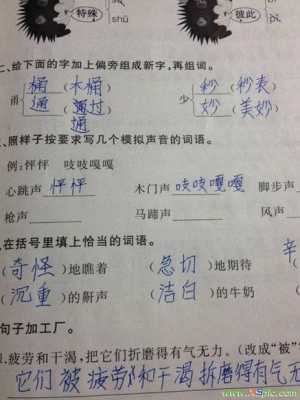 特殊 彼此
shū
二、给下面的字加上偏旁组成新字,再组词。
桶 (木桶) 秒 (秒表)
甬 少
通 (通过) 妙 (美妙)
通
、照样子按要求写几个模拟声音的词语。
例:怦怦 吱吱嘎嘎
心跳声 怦怦 木门声 吱吱嘎嘎 脚步声
枪声 马蹄声 风声
、在括号里填上恰当的词语。
(奇怪)地瞧着 (急切)地期待
(沉重)的鼾声 (洁白)的牛奶
句子加工厂。
1.疲劳和干渴,把它们折磨得有气无力。(改成“被”
它们被疲劳和干渴折磨得有气无
www.ASpic.com